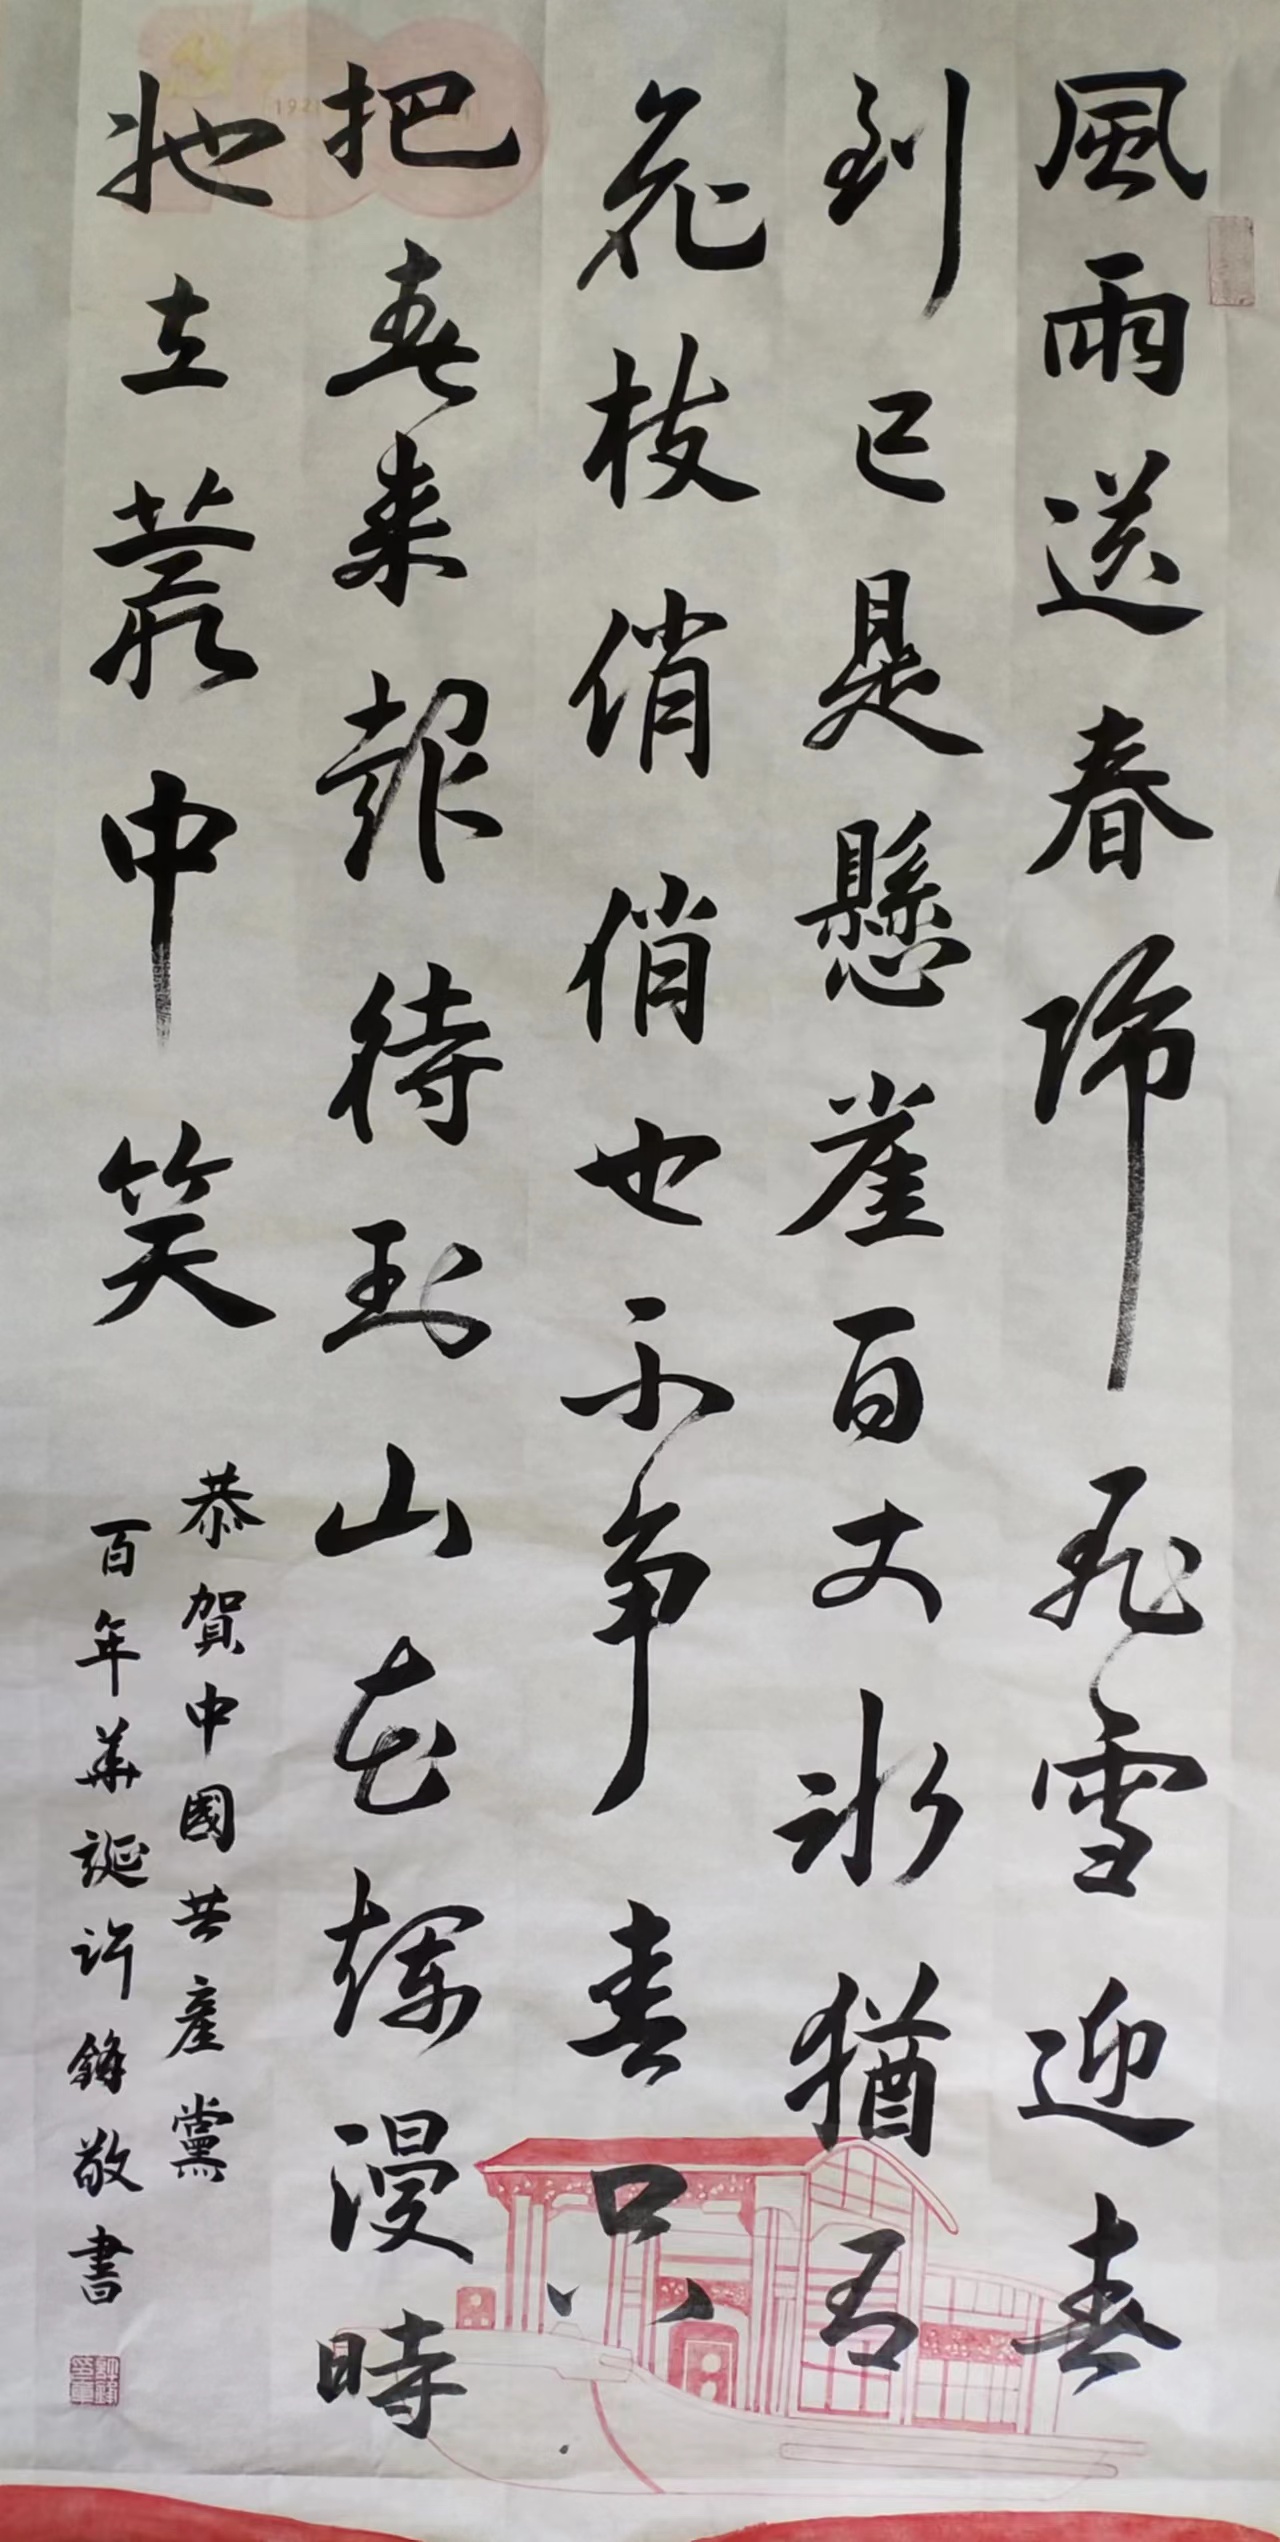 風雨送春歸飛雪迎春
到已是懸崖百丈冰猶有
花枝俏俏也不争春只
把春来報待到山花爛漫時
她立叢中笑
恭賀中國共産黨
百年華誕許鋒敬書
1921